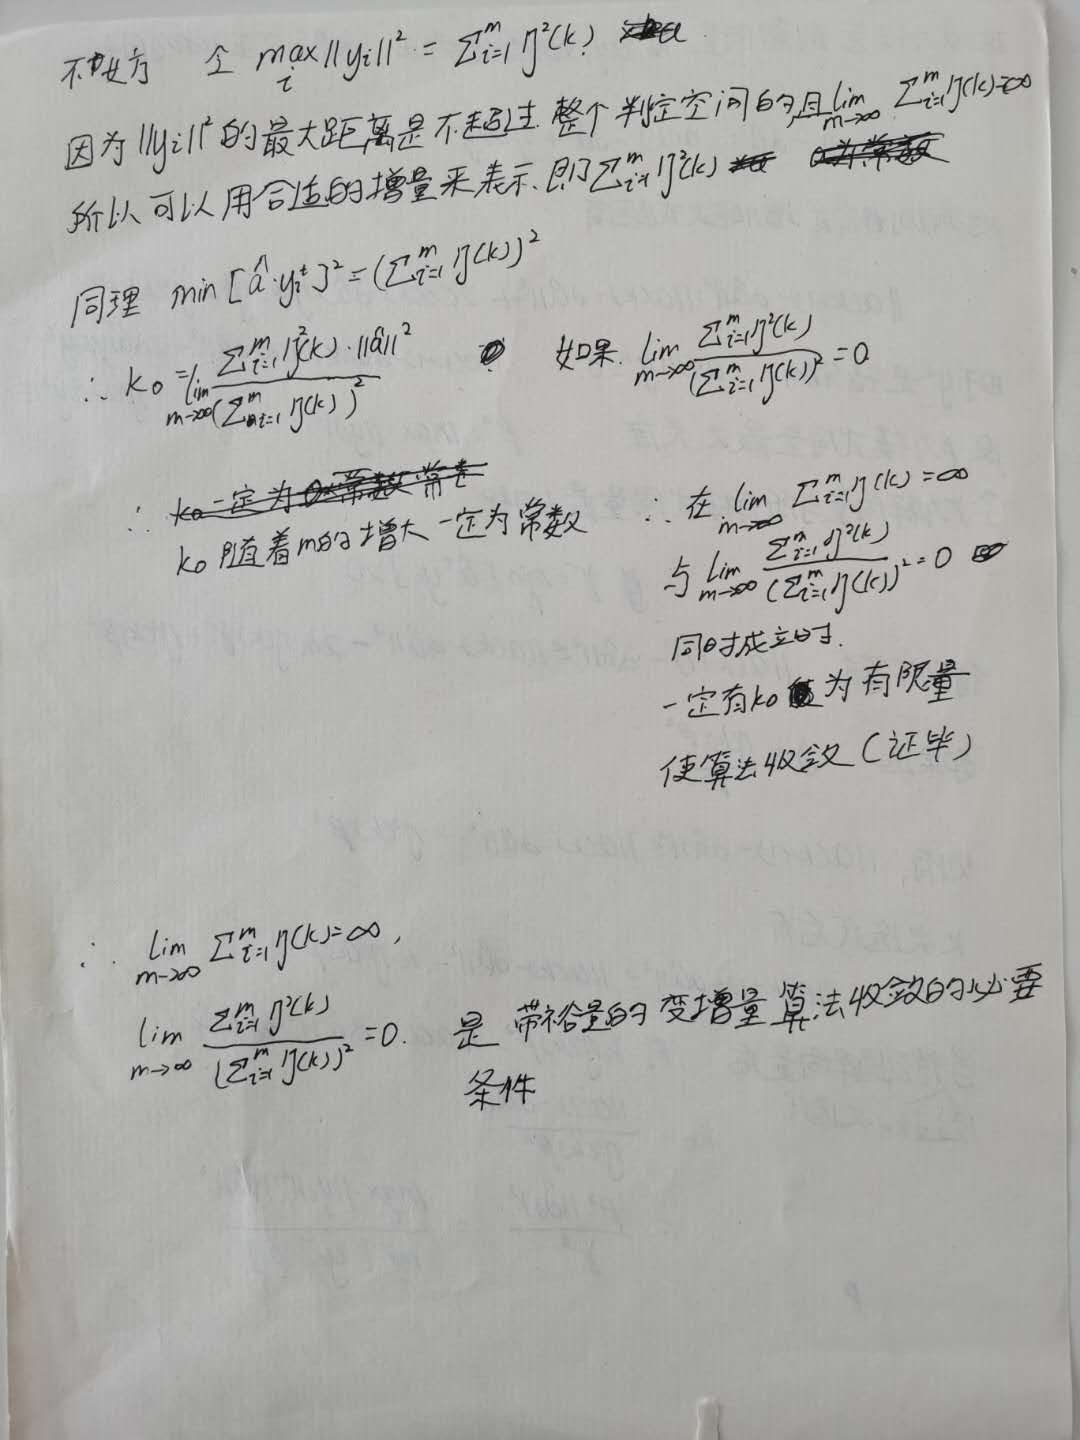 不妨方 令 max_i ||y_i||² = Σ_{i=1}^m η²(k)
因为||y_i||²的最大距离是不超过整个判定空间的,且lim_{m→∞} Σ_{i=1}^m η(k)=∞
所以可以用合适的增量来表示.即Σ_{i=1}^m η²(k)
同理 min [â·y_i^t]² = (Σ_{i=1}^m η(k))²
∴ k₀ = lim_{m→∞} Σ_{i=1}^m η²(k)·||â||² / (Σ_{i=1}^m η(k))² 如果. lim_{m→∞} Σ_{i=1}^m η²(k) / (Σ_{i=1}^m η(k))² = 0
∴ k₀随着m的增大一定为常数
∴ 在 lim_{m→∞} Σ_{i=1}^m η(k) = ∞
与 lim_{m→∞} Σ_{i=1}^m η²(k) / (Σ_{i=1}^m η(k))² = 0
同时成立时.
一定有k₀为有限量
使算法收敛(证毕)
∴ lim_{m→∞} Σ_{i=1}^m η(k)=∞,
lim_{m→∞} Σ_{i=1}^m η²(k) / (Σ_{i=1}^m η(k))² = 0. 是 带裕量的变增量算法收敛的必要
条件